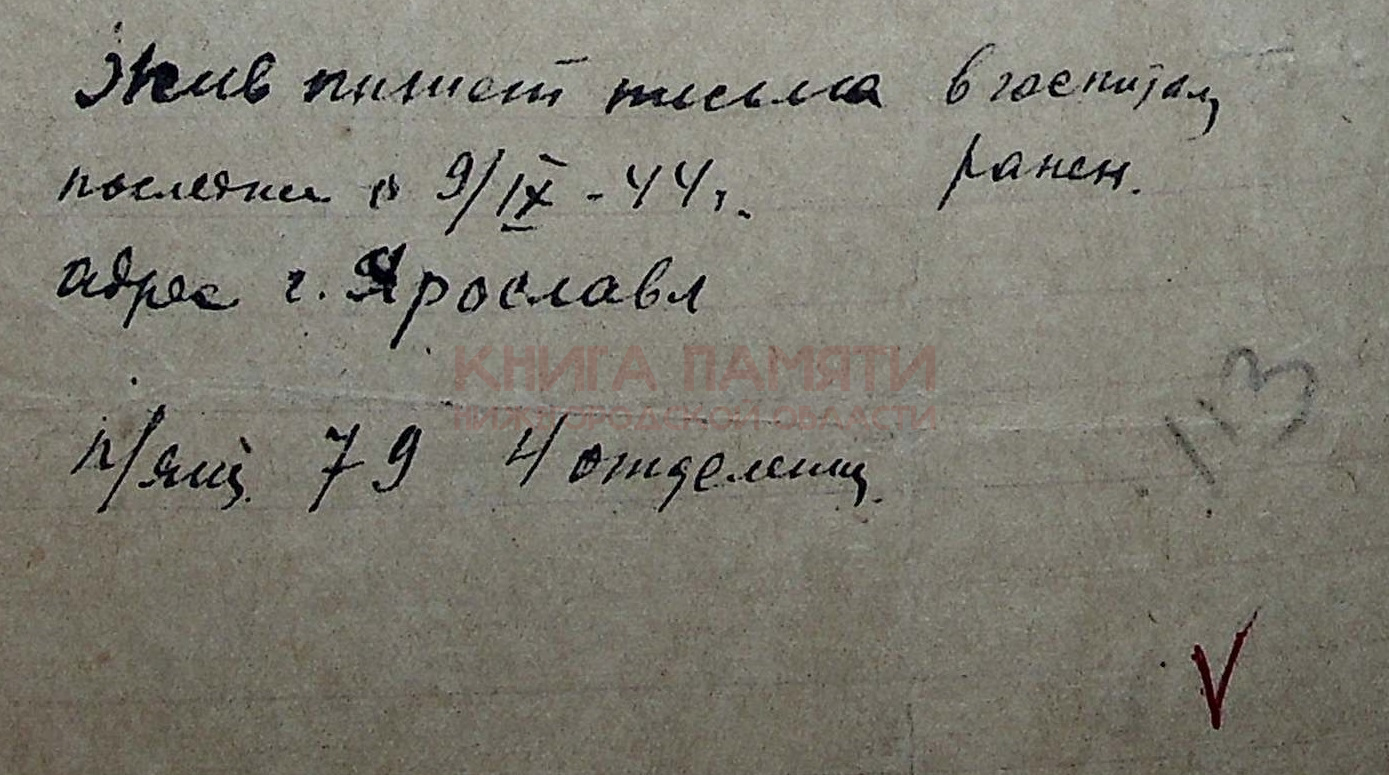 Жив пишет письма в госпитал
последнее 9/IX-44г. ранен.
адрес г. Ярославл
КНИГА ПАМЯТИ
НИЖЕГОРОДСКОЙ ОБЛАСТИ
п/ящ. 79 4 отделени
113